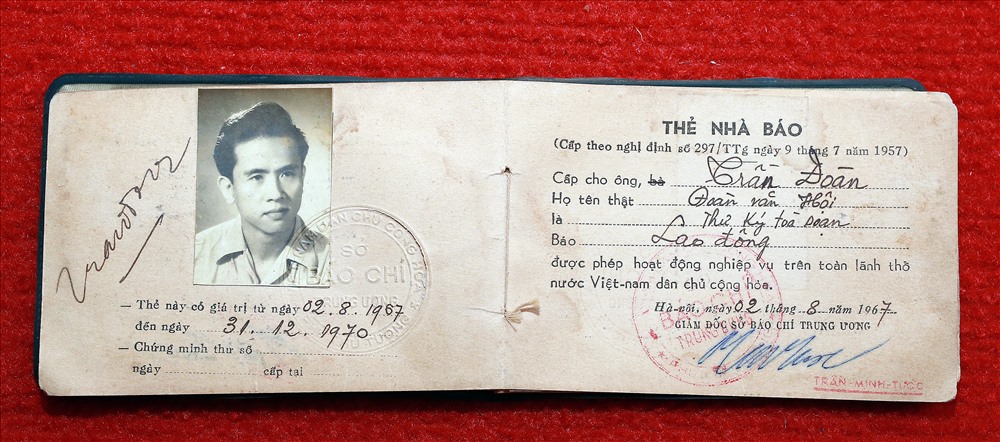 — Thẻ này có giá trị từ ngày 02.8.1967
đến ngày 31.12.1970
— Chứng minh thư số
ngày cấp tại
SỞ
BÁO CHÍ
TRUNG ƯƠNG
THẺ NHÀ BÁO
(Cấp theo nghị định số 297/TTg ngày 9 tháng 7 năm 1957)
Cấp cho ông, bà Trần Đoàn
Họ tên thật Đoàn văn Hội
là Thư Ký toà soạn
Báo Lao động
được phép hoạt động nghiệp vụ trên toàn lãnh thổ
nước Việt-nam dân chủ cộng hòa.
Hà-nội, ngày 02 tháng 8 năm 1967
GIÁM ĐỐC SỞ BÁO CHÍ TRUNG ƯƠNG
BÁO CHÍ
TRUNG ƯƠNG
TRẦN-MINH-TƯỚC